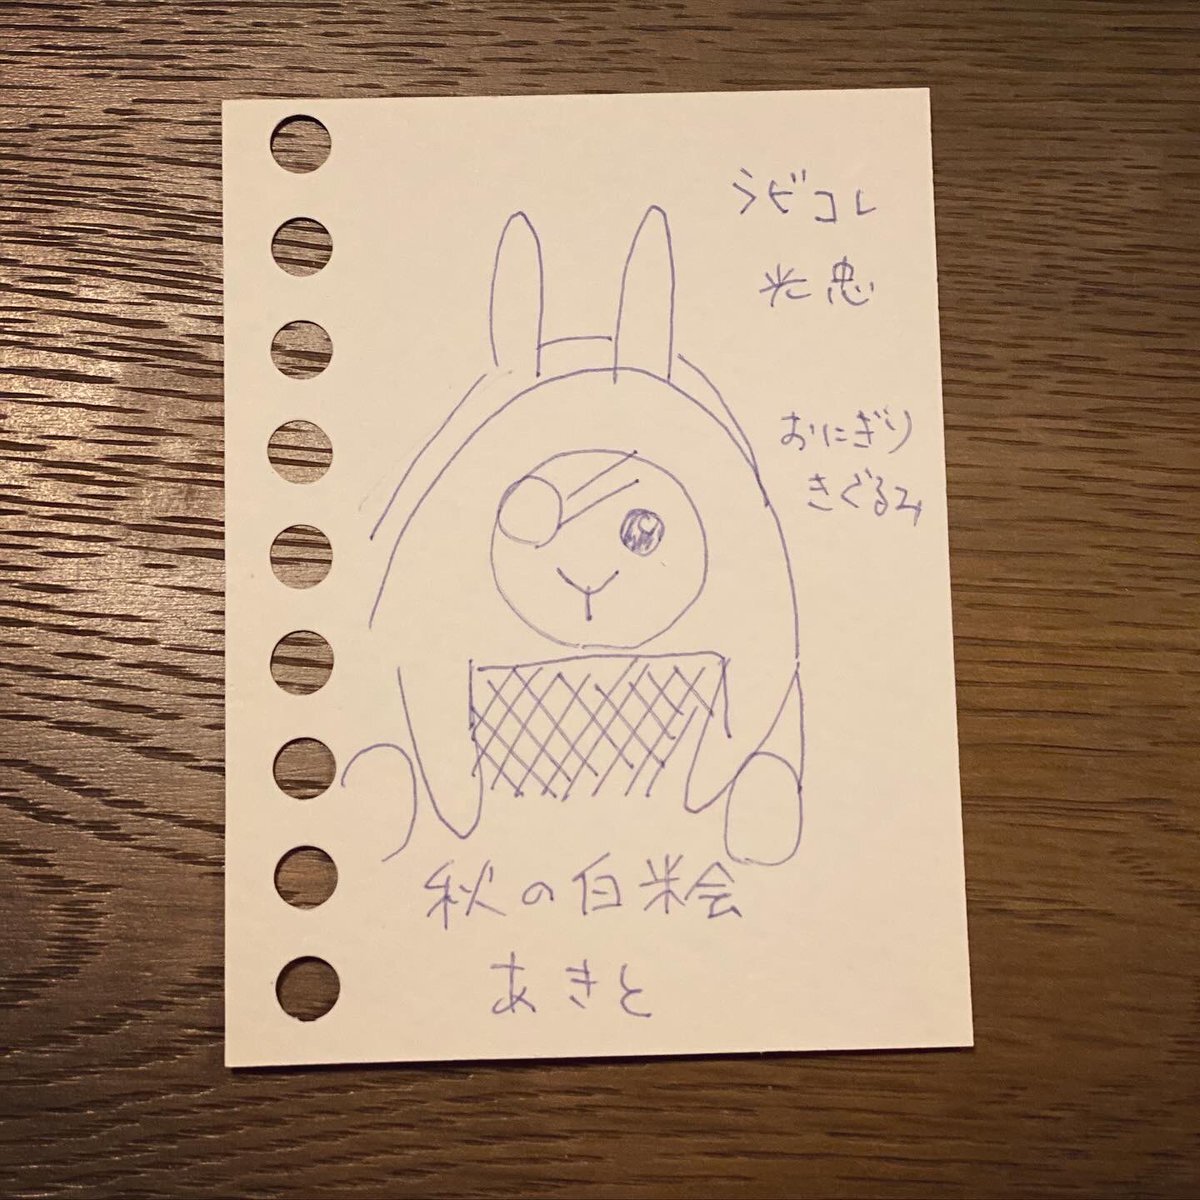 ラビコレ
光忠
おにぎり
きぐるみ
秋の白米会
あきと